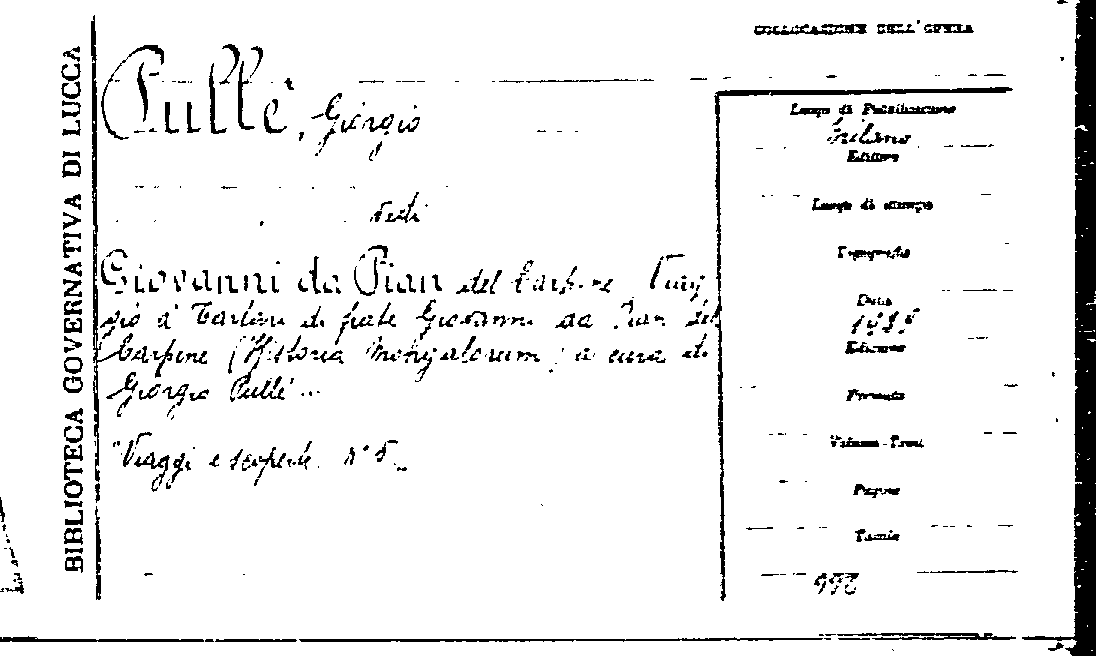 BIBLIOTECA GOVERNATIVA DI LUCCA
COLLOCAZIONE DELL'OPERA
Pullè, Giorgio
vedi
Giovanni da Pian del Carpine Viag
gio a' Tartari di frate Giovanni da Pian del
Carpine (Historia Mongalorum) a cura di
Giorgio Pullè...
"Viaggi e scoperte. n° 5"
Luogo di Pubblicazione
Milano
Editore
Luogo di stampa
Tipografia
Data
Edizione
Formato
Volume-Tomi
Pagine
Tavole